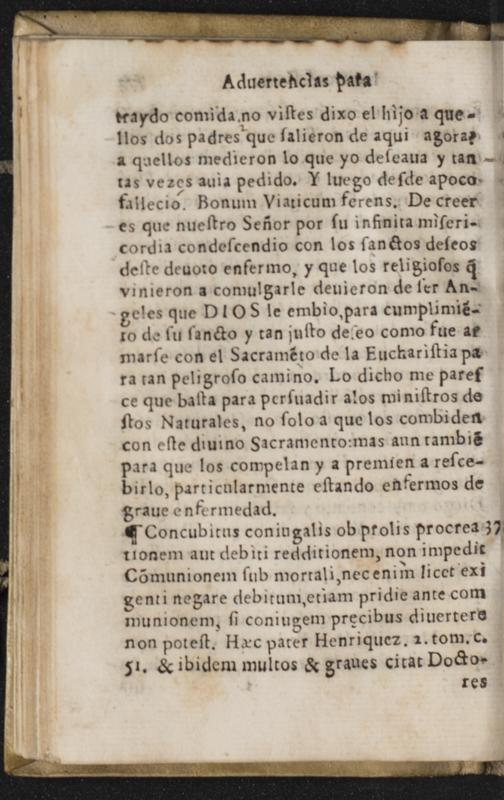 Aduertencias para
traydo comida, no vistes dixo el hijo a que-
llos dos padres que salieron de aqui agora?
a quellos medieron lo que yo deseaua y tan
tas vezes auia pedido. Y luego desde apoco
fallecio. Bonum Viaticum ferens. De creer
es que nuestro Señor por su infinita miseri-
cordia condescendio con los sanctos deseos
deste deuoto enfermo, y que los religiosos q̃
vinieron a comulgarle deuieron de ser An-
geles que DIOS le embio, para cumplimiẽ-
to de su sancto y tan justo deseo como fue ar
marse con el Sacramẽto de la Eucharistia pa
ra tan peligroso camino. Lo dicho me pares
ce que basta para persuadir alos ministros de
stos Naturales, no solo a que los combiden
con este diuino Sacramento: mas aun tambiẽ
para que los compelan y a premien a resce-
birlo, particularmente estando enfermos de
graue enfermedad.
¶ Concubitus coniugalis ob prolis procrea 37
tionem aut debiti redditionem, non impedit
Cõmunionem sub mortali, nec enim licet exi
genti negare debitum, etiam pridie ante com
munionem, si coniugem precibus diuertere
non potest. Hæc pater Henriquez. 2. tom. c.
51. & ibidem multos & graues citat Docto-
res